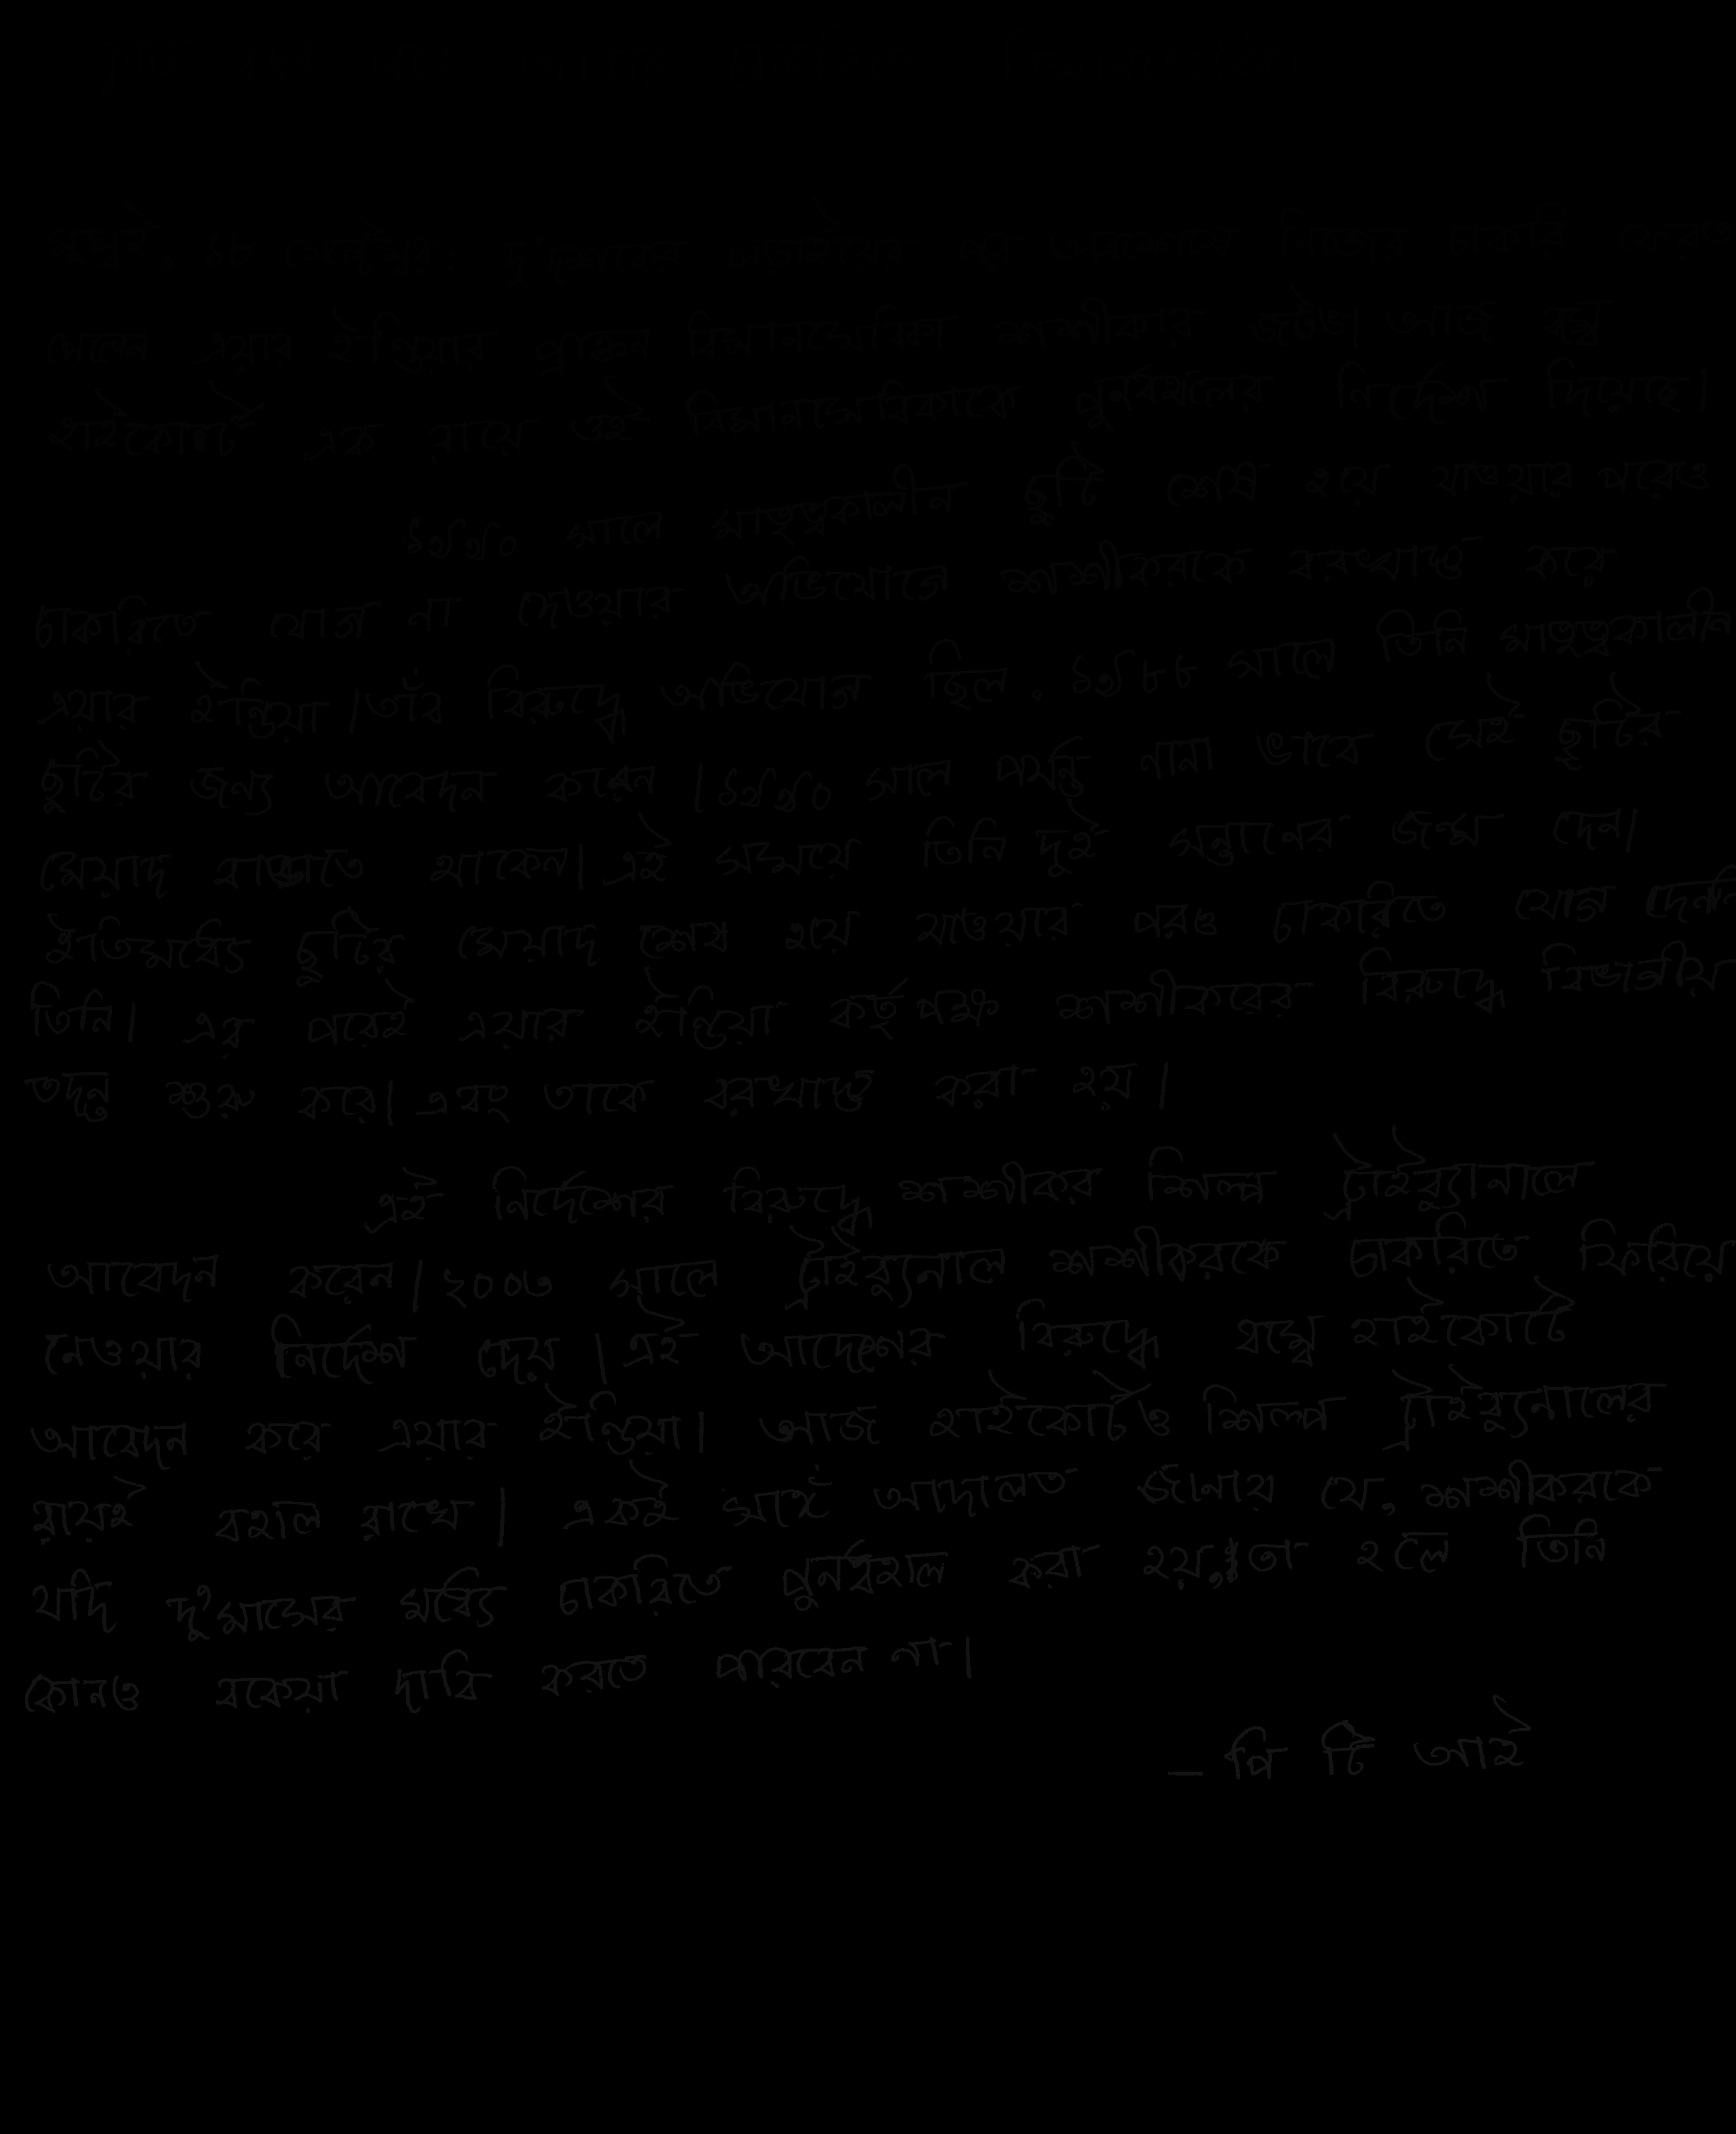 মুম্বই, ১৮ সেপ্টেম্বর: দু'দশকের লড়াইয়ের পর অবশেষে নিজের চাকরি ফেরত
পেলেন এয়ার ইন্ডিয়ার প্রাক্তন বিমানসেবিকা শশীকার জটভ। আজ বম্বে
হাইকোর্ট এক রায়ে ওই বিমানসেবিকাকে পুনর্বহালের নির্দেশ দিয়েছে।
১৯৯০ সালে মাতৃত্বকালীন ছুটি শেষ হয়ে যাওয়ার পরেও
চাকরিতে যোগ না দেওয়ার অভিযোগে শশীকরকে বরখাস্ত করে
এয়ার ইন্ডিয়া। তাঁর বিরুদ্ধে অভিযোগ ছিল, ১৯৮৮ সালে তিনি মাতৃত্বকালীন
ছুটির জন্য আবেদন করেন। ১৯৯০ সাল পর্যন্ত নানা ভাবে সেই ছুটির
মেয়াদ বাড়াতে থাকেন। এই সময়ে তিনি দুই সন্তানের জন্ম দেন।
ইতিমধ্যে ছুটির মেয়াদ শেষ হয়ে যাওয়ার পরও চাকরিতে যোগ দেননি
তিনি। এর পরেই এয়ার ইন্ডিয়া কর্তৃপক্ষ শশীকরের বিরুদ্ধে বিভাগীয়
তদন্ত শুরু করে। এবং তাকে বরখাস্ত করা হয়।
এই নির্দেশের বিরুদ্ধে শশীকর শিল্প ট্রাইব্যুনালে
আবেদন করেন। ২০০৩ সালে ট্রাইব্যুনাল শশীকরকে চাকরিতে ফিরিয়ে
নেওয়ার নির্দেশ দেয়। এই আদেশের বিরুদ্ধে বম্বে হাইকোর্টে
আবেদন করে এয়ার ইন্ডিয়া। আজ হাইকোর্টও শিল্প ট্রাইব্যুনালের
রায়ই বহাল রাখে। একই সঙ্গে আদালত জানায় যে, শশীকরকে
যদি দু'মাসের মধ্যে চাকরিতে পুনর্বহাল করা হয়, তা হলে তিনি
কোনও বকেয়া দাবি করতে পারবেন না।
— পি টি আই